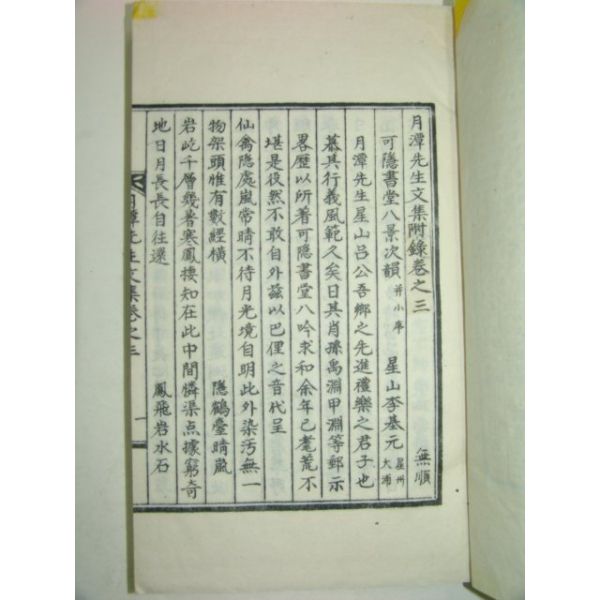 月潭先生文集附錄卷之三
無順
可隱書堂八景次韻 并小序 星山李基元 星州大浦
月潭先生星山呂公吾鄉之先進禮樂之君子也
慕其行義風範久矣日其肖孫禹淵甲淵等郵示
畧歷以所著可隱書堂八吟求和余年已耄荒不
堪是役然不敢自外茲以巴俚之音代呈
仙禽隱處嵐常晴不待月光境自明此外染汚無一
物架頭惟有數經橫 隱鶴臺晴嵐
岩屹千層幾暑寒鳳棲知在此中間憐渠点據窮奇
地日月長長自往還 鳳飛岩水石
月潭先生文集卷之三
一